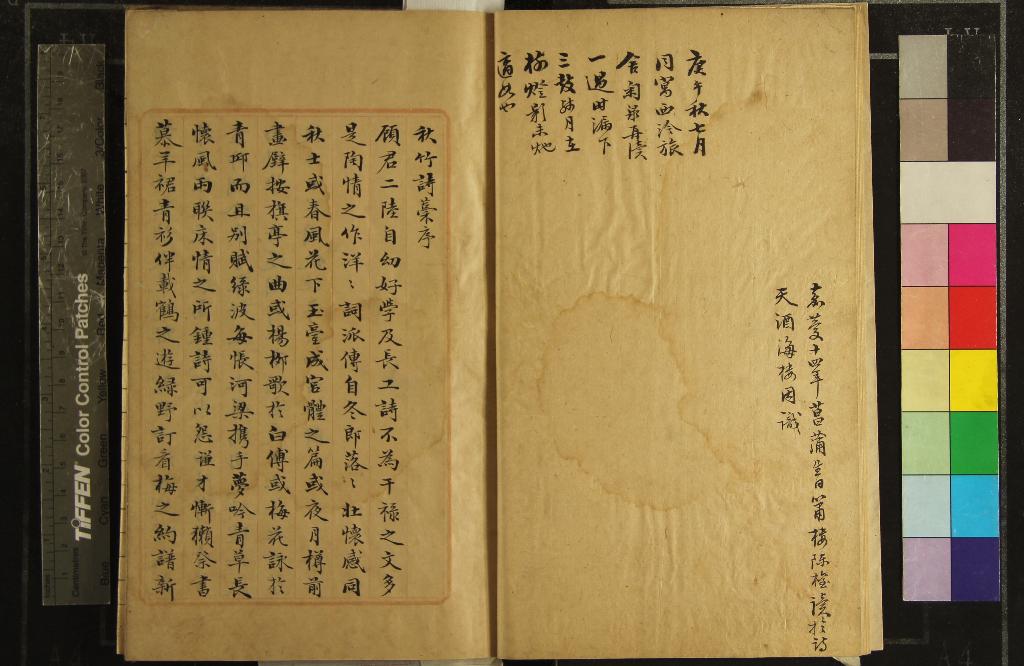 嘉慶十四年菖蒲生日簫樓陳權讀於詩
天酒海樓因識
庚午秋七月
同寓西泠旅
舍菊泉再讀
一過時漏下
三鼓纖月在
梅燈影未灺
適如也
秋竹詩藁序
頋君二陸自幼好學及長工詩不為干祿之文多
是陶情之作洋〻詞派傳自冬郎落〻壯懷感同
秋士或春風花下玉臺成宮體之篇或夜月樽前
畫壁按旗亭之曲或楊柳歌於白傅或梅花詠於
青邱而且別賦綠波每悵河梁攜手夢吟青草長
懷風雨聯床情之所鍾詩可以怨謹才慚獺祭書
慕羊裙青衫伴載鶴之遊綠野訂看梅之約譜新
TIFFEN Color Control Patches
Centimetres
Inches
Blue
Cyan
Green
Yellow
Red
Magenta
White
3/Color
Black